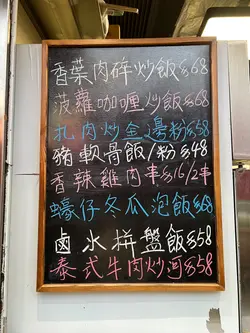 香菜肉碎炒飯$68
菠蘿咖喱炒飯$68
扎肉炒金邊粉$58
豬軟骨飯/粉$48
香辣雞肉串$16/2串
蠔仔冬瓜泡飯$68
鹵水拼盤飯$58
泰式牛肉炒河$58